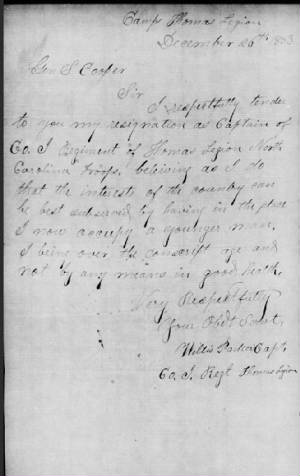 Camp Thomas Legion
December 20th 1863
Gen S. Cooper
Sir
I respectfully tender
to you my resignation as Captain of
Co. I Regiment of Thomas Legion North
Carolina Troops, believing as I do
that the interests of the country can
be best subserved by having in the place
I now occupy a younger man,
I being over the conscript age and
not by any means in good health.
Very Respectfully
Your Obdt Servt,
Willis Parker Capt.
Co. I. Regt Thomas Legion